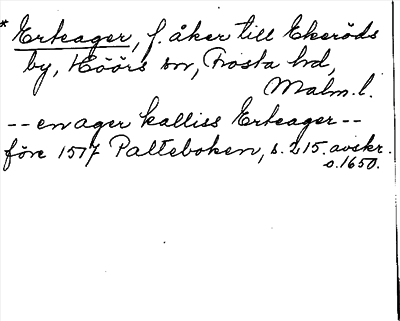 * Erteager, f. åker till Ekeröds
by, Höörs sn, Frosta hd,
Malm.l.
-- en ager kalliss Erteager --
före 1517 Palteboken, s. 215. avskr.
o. 1650.